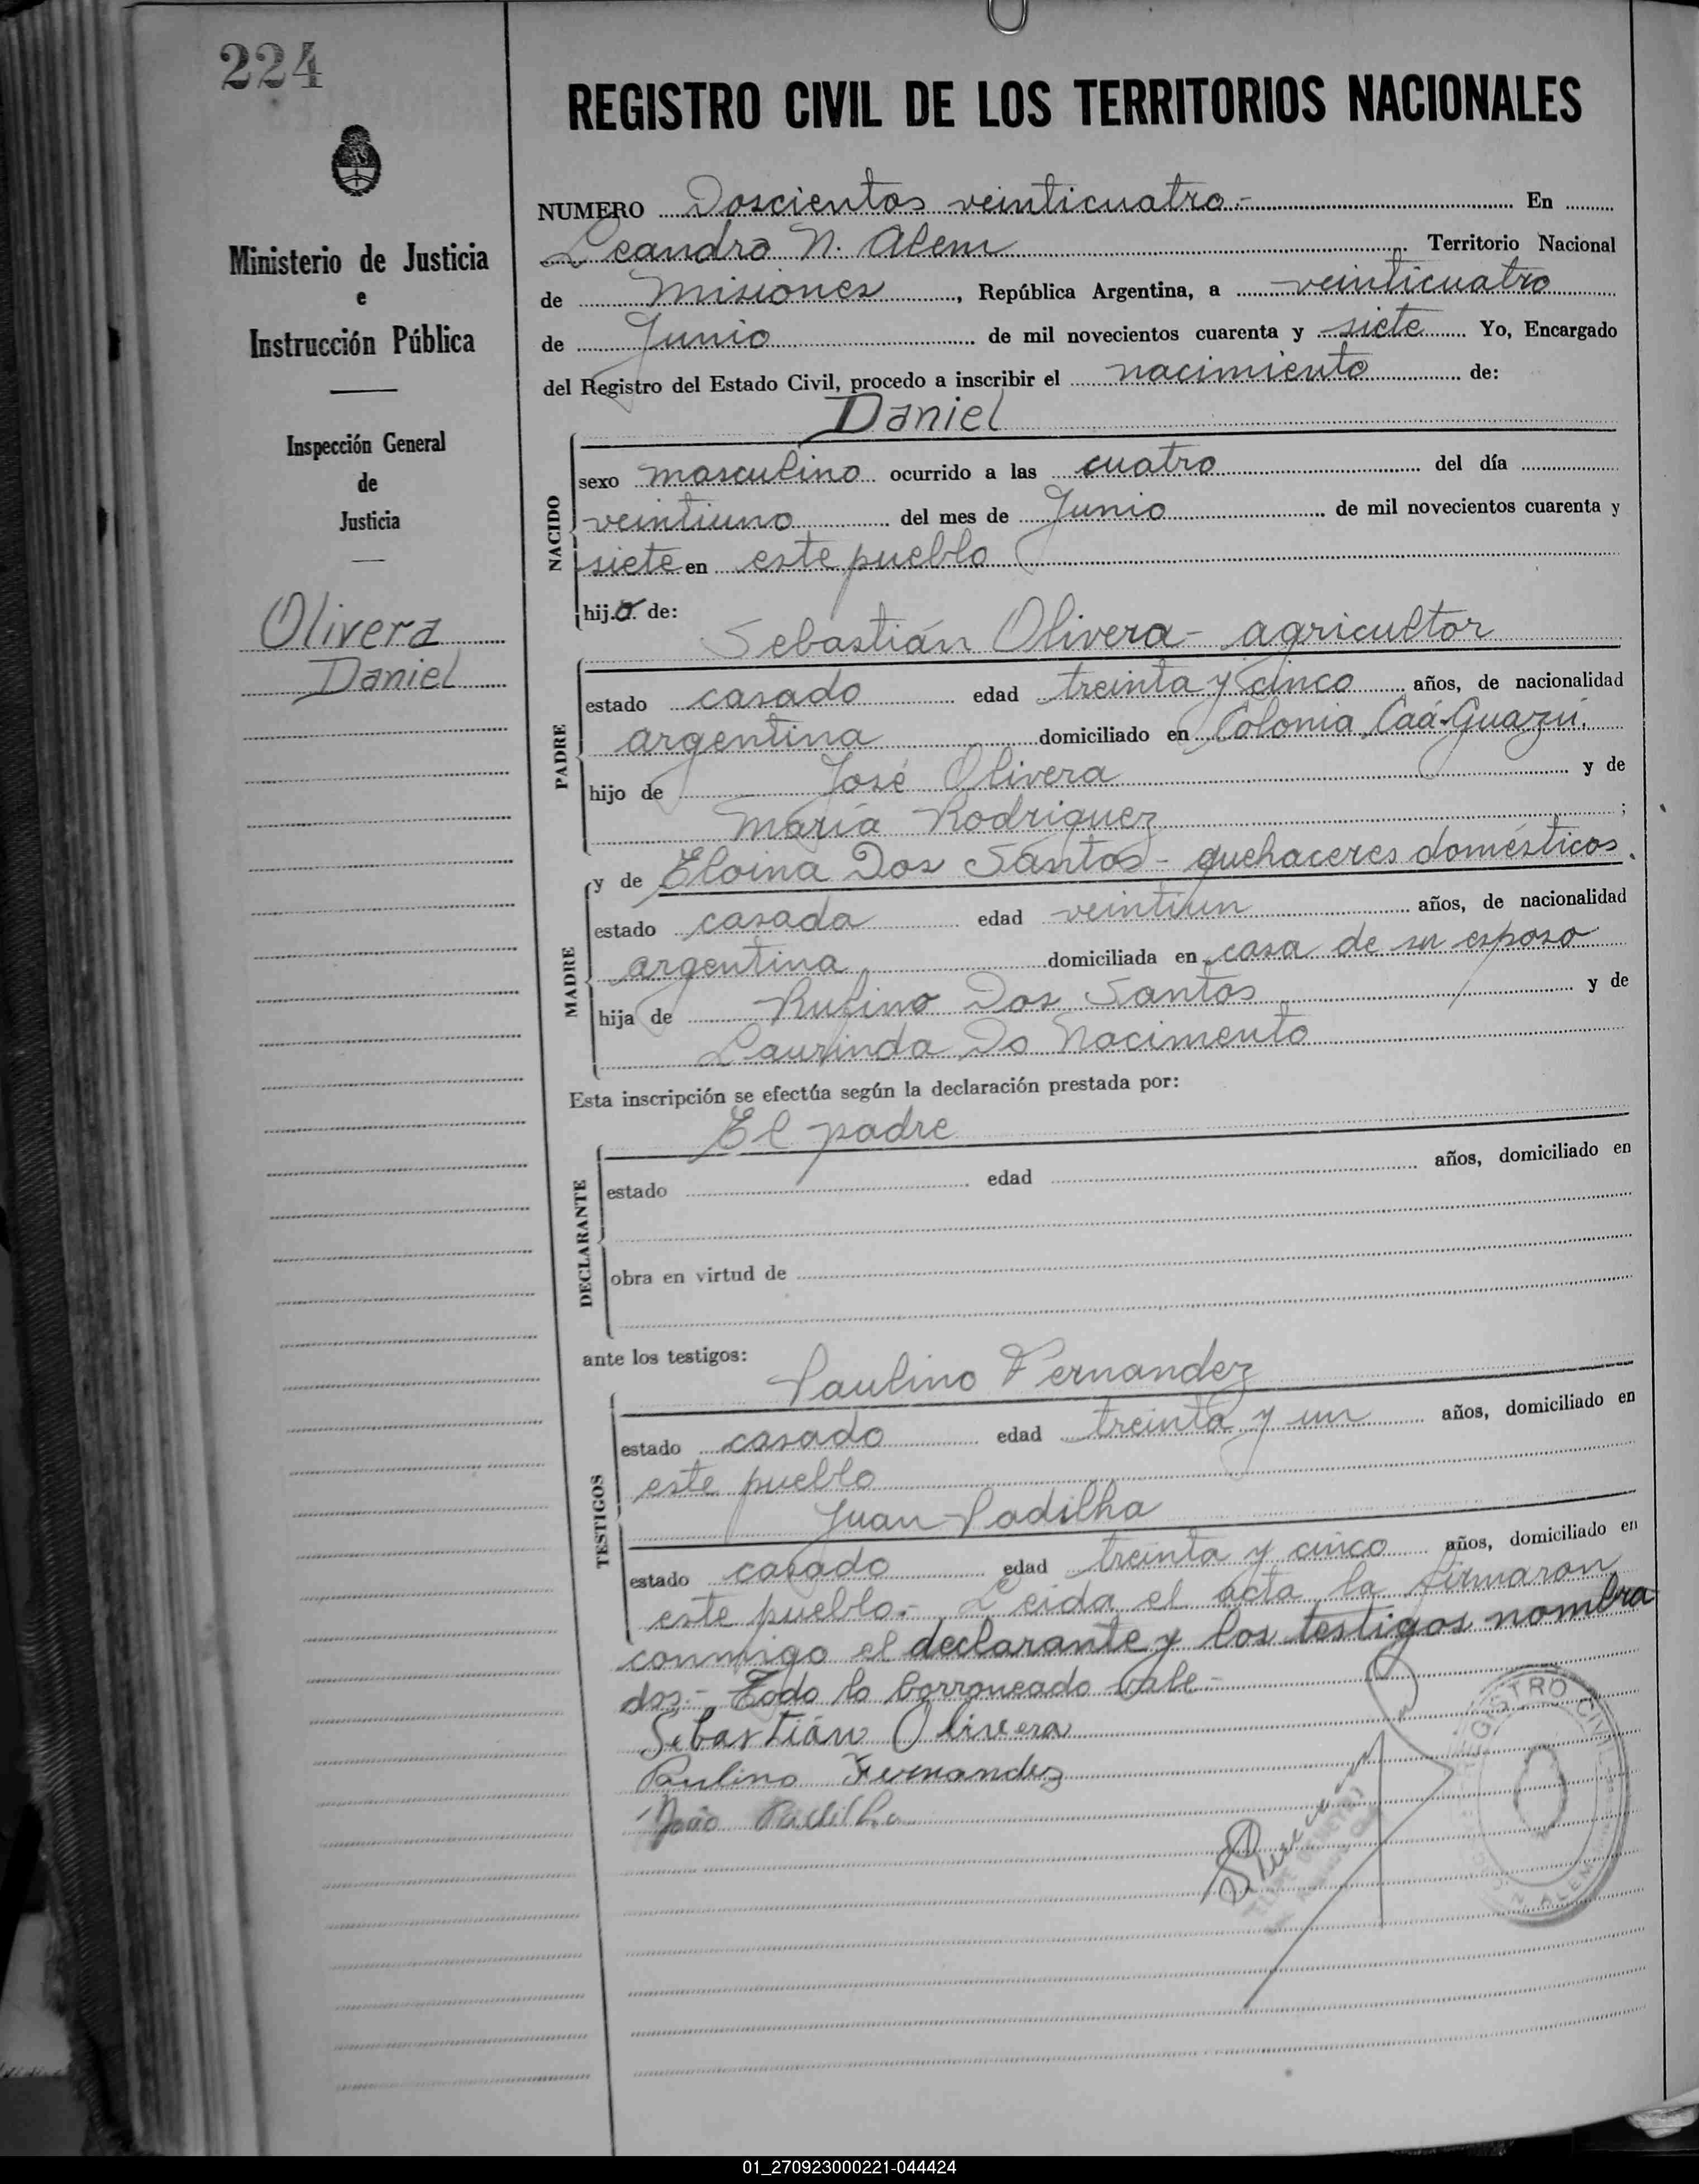 224
Ministerio de Justicia
e
Instrucción Pública
Inspección General
de
Justicia
Olivera
Daniel
REGISTRO CIVIL DE LOS TERRITORIOS NACIONALES
NUMERO Doscientos veinticuatro.- En
Leandro N. Alem Territorio Nacional
de Misiones, República Argentina, a veinticuatro
de Junio de mil novecientos cuarenta y siete Yo, Encargado
del Registro del Estado Civil, procedo a inscribir el nacimiento de:
Daniel
NACIDO
sexo masculino ocurrido a las cuatro del día
veintiuno del mes de Junio de mil novecientos cuarenta y
siete en este pueblo
hijo de:
Sebastián Olivera - agricultor
PADRE
estado casado edad treinta y cinco años, de nacionalidad
argentina domiciliado en Colonia Caá-Guazú.
hijo de José Olivera y de
María Rodriguez ;
MADRE
y de Eloina Dos Santos - quehaceres domésticos.
estado casada edad veintiun años, de nacionalidad
argentina domiciliada en casa de su esposo
hija de Rufino Dos Santos y de
Laurinda Do Nacimento
Esta inscripción se efectúa según la declaración prestada por:
El padre
DECLARANTE
estado edad años, domiciliado en
obra en virtud de
ante los testigos:
Paulino Fernandez
TESTIGOS
estado casado edad treinta y un años, domiciliado en
este pueblo
Juan Padilha
estado casado edad treinta y cinco años, domiciliado en
este pueblo.- Leida el acta la firmaron
conmigo el declarante y los testigos nombra
dos.- Todo lo borroneado vale.-
Sebastián Olivera
Paulino Fernandez
João Padilha
REGISTRO CIVIL
N. ALEM
01_270923000221-044424